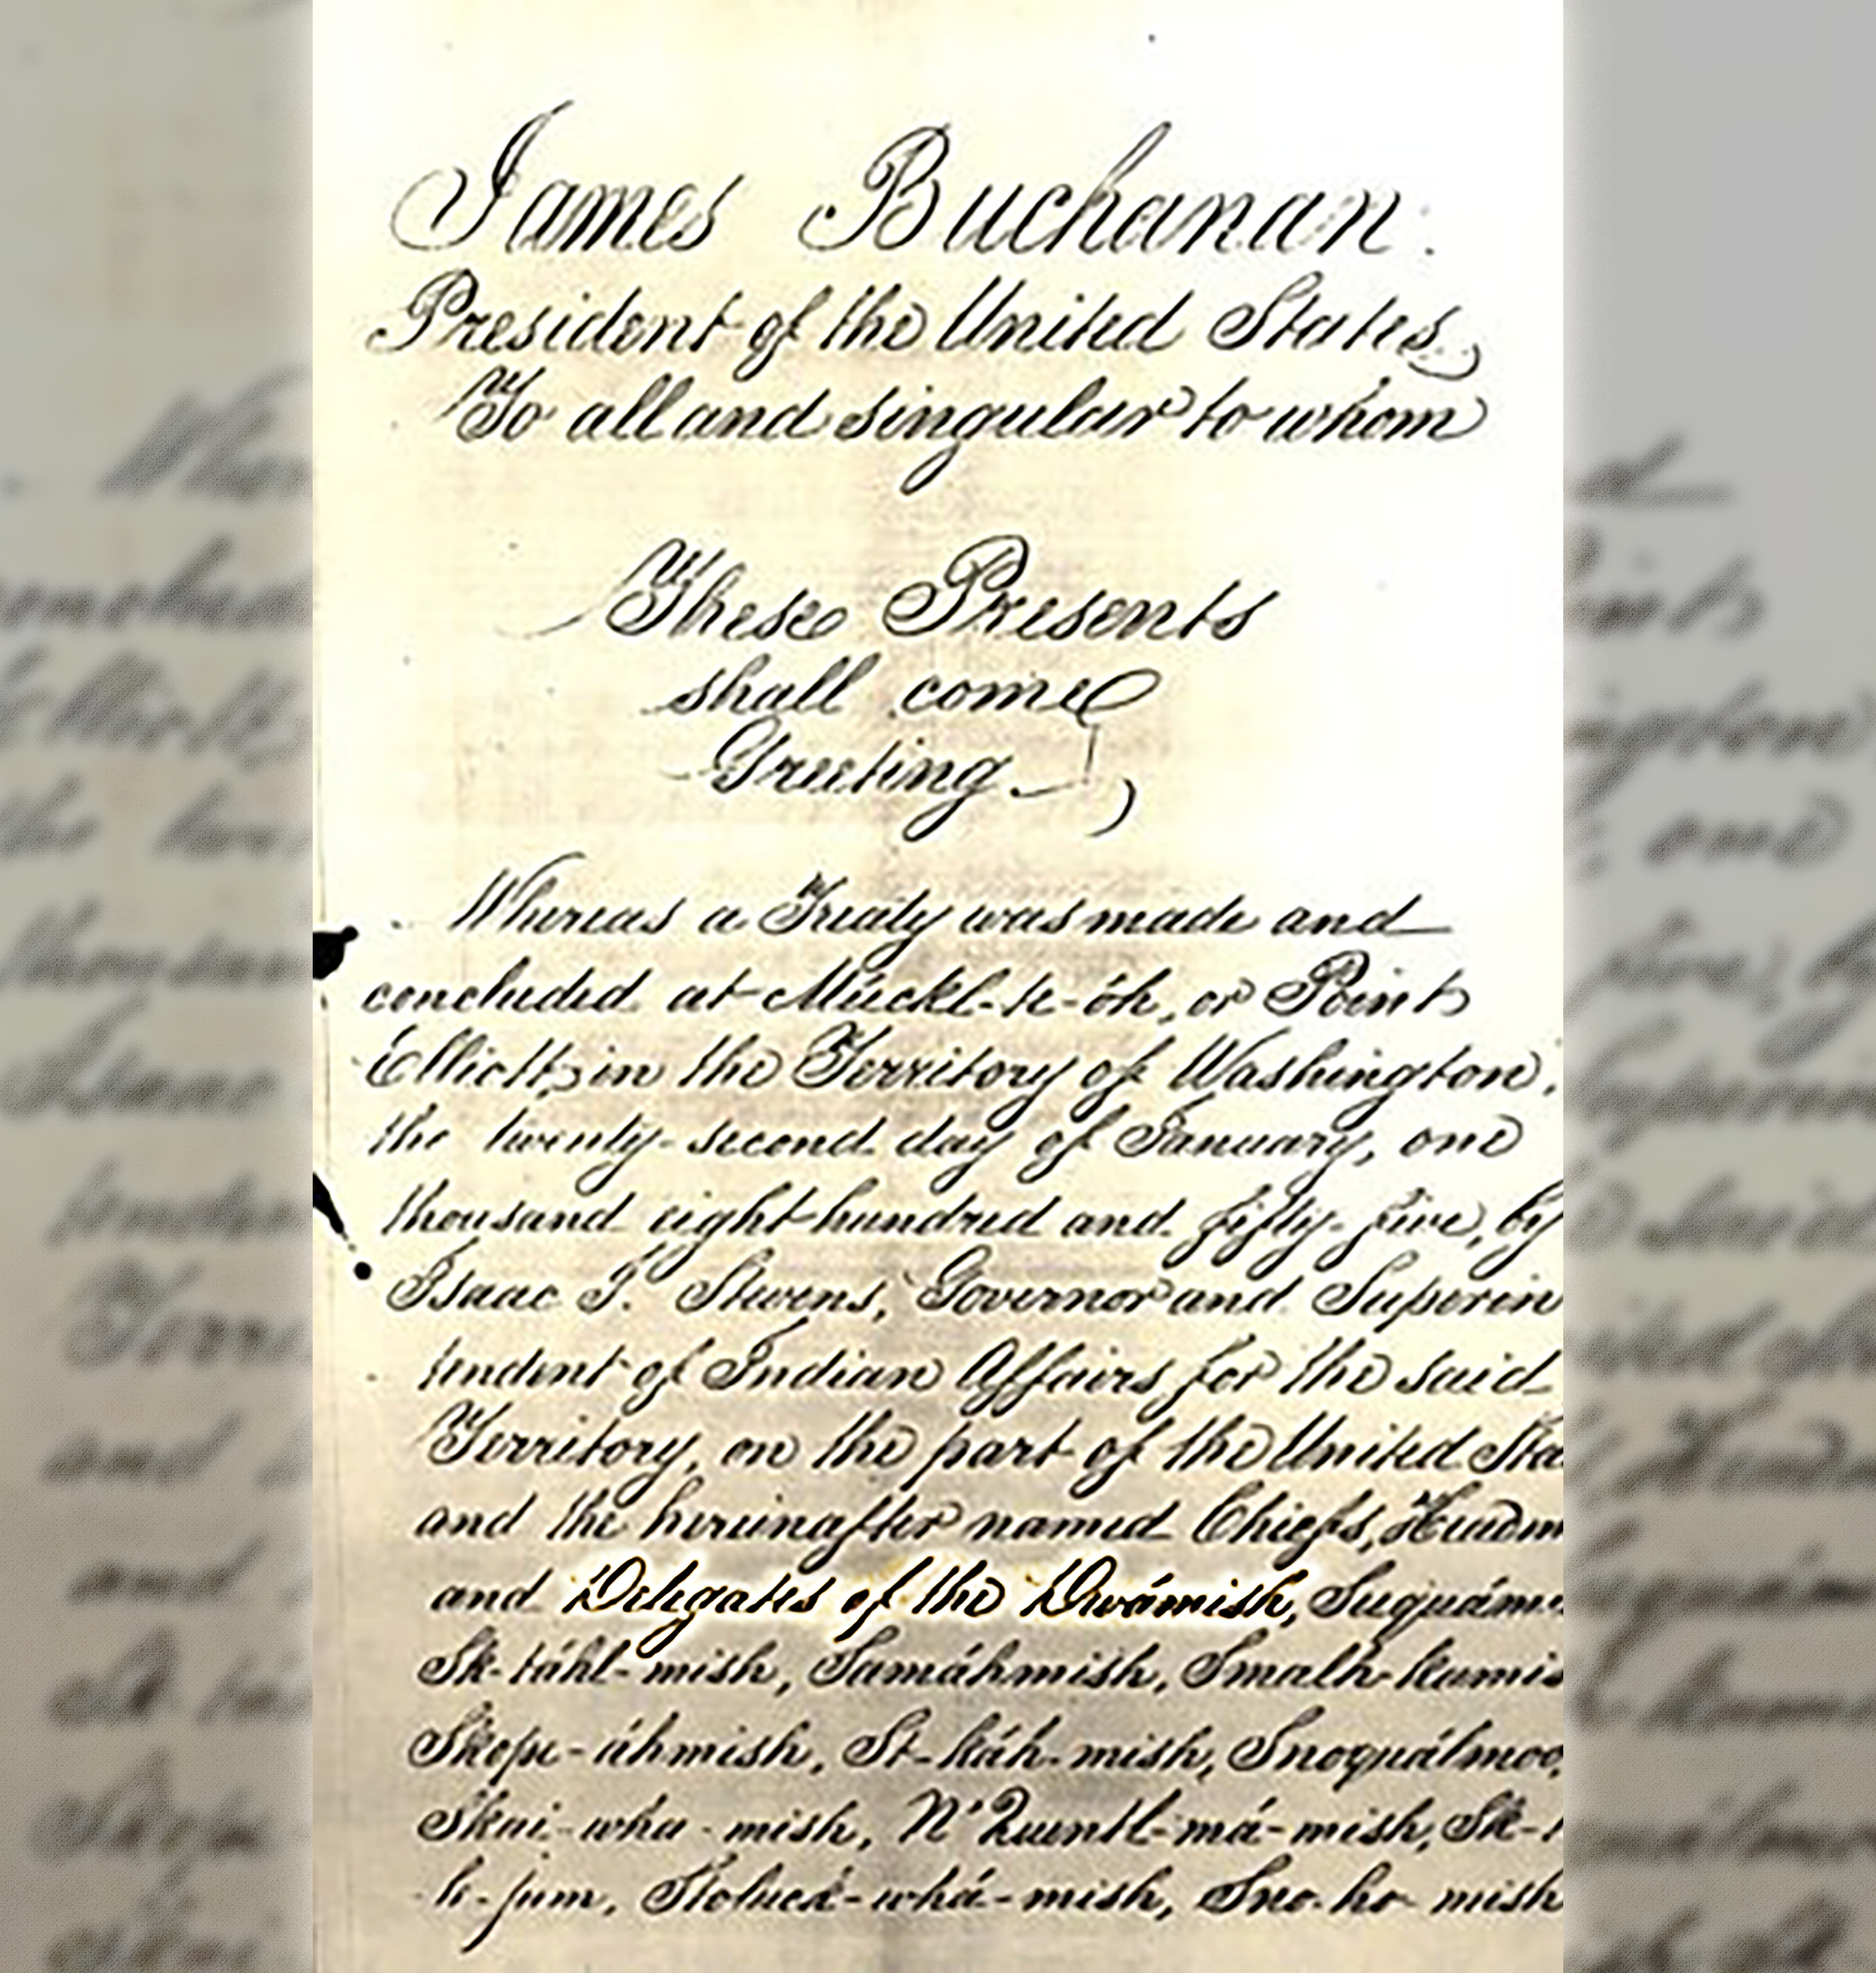 James Buchanan.
President of the United States,
To all and singular to whom
These Presents
shall come
Greeting
Whereas a Treaty was made and
concluded at Múckl-te-óh, or Point
Elliott, in the Territory of Washington,
the twenty-second day of January, one
thousand eight hundred and fifty-five, by
Isaac I. Stevens, Governor and Superin
tendent of Indian Affairs for the said
Territory, on the part of the United Sta
and the hereinafter named Chiefs, Headm
and Delegates of the Dwámish, Suquám
Sk-táhl-mish, Samáhmish, Smalh-kamis
Skope-áhmish, St-káh-mish, Snoquálmoo,
Skai-wha-mish, N'Quentl-má-mish, Sk-t
h-jum, Stoluck-whá-mish, Sno-ho-mish